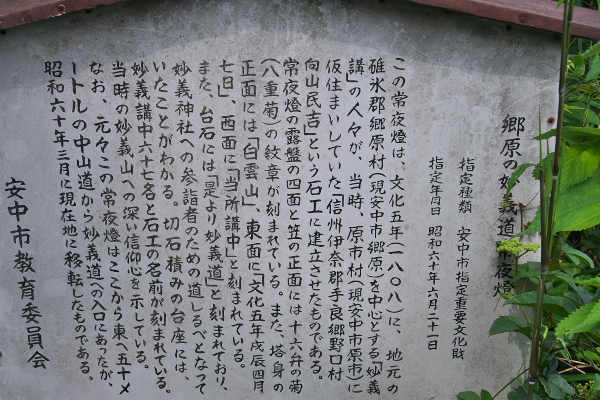 郷原の妙義道常夜燈
指定種類　安中市指定重要文化財
指定年月日　昭和六十年六月二十一日
この常夜燈は、文化五年(一八〇八)に、地元の
碓氷郡郷原村(現安中市郷原)を中心とする「妙義
講」の人々が、当時、原市村(現安中市原市)に
仮住まいしていた「信州伊奈郡手良郷野口村
向山民吉」という石工に建立させたものである。
常夜燈の露盤の四面と笠の正面には十六弁の菊
(八重菊)の紋章が刻まれている。また、塔身の
正面には「白雲山」、東面に「文化五年戊辰四月
七日」、西面に「当所講中」と刻まれている。
また、台石には「是より妙義道」と刻まれており、
妙義神社への参詣者のための道しるべとなって
いたことがわかる。切石積みの台座には、
妙義講中六十七名と石工の名前が刻まれている。
当時の妙義山への深い信仰心を示している。
なお、元々この常夜燈はここから東へ五十メ
ートルの中山道から妙義道への入口にあったが、
昭和六十年三月に現在地に移転したものである。
安中市教育委員会